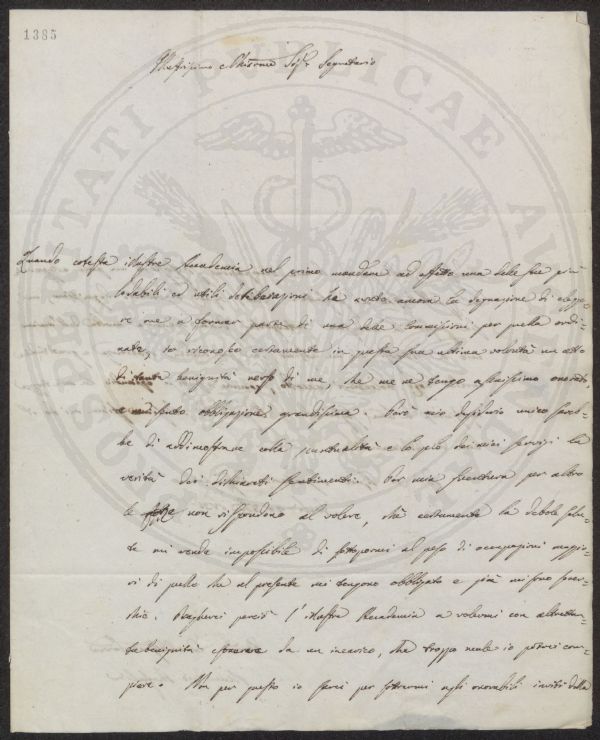 1385
Illustrissimo e Sig.r Segretario
Quando cotesta illustre Accademia nel primo mandare ad effetto una delle sue più
lodabili ed utili deliberazioni ha avuto ancora la degnazione di elegge-
re me a formar parte di una delle Commissioni per quella ordi-
nate, io riconosco certamente in questa sua ultima volontà un atto
di tanta benignità verso di me, che me ne tengo assaissimo onorato,
e ne sento obbligazione grandissima. Però mio desiderio unico sareb-
be di addimostrare colla puntualità e lo zelo dei miei servigi la
verità dei dichiarati sentimenti. Per mia sventura per altro
le forze non rispondono al volere, chè certamente la debole salu-
te mi rende impossibile di sottopormi al peso di occupazioni maggio-
ri di quelle che al presente mi tengono obbligato e già mi sono sover-
chie. Pregherei perciò l'illustre Accademia a volermi con altrettan-
ta benignità esonerare da un incarico, che troppo male io potrei com-
piere. Non per questo io sarei per sottrarmi agli onorabili inviti della
PROSPERITATI PUBLICAE AUGENDAE